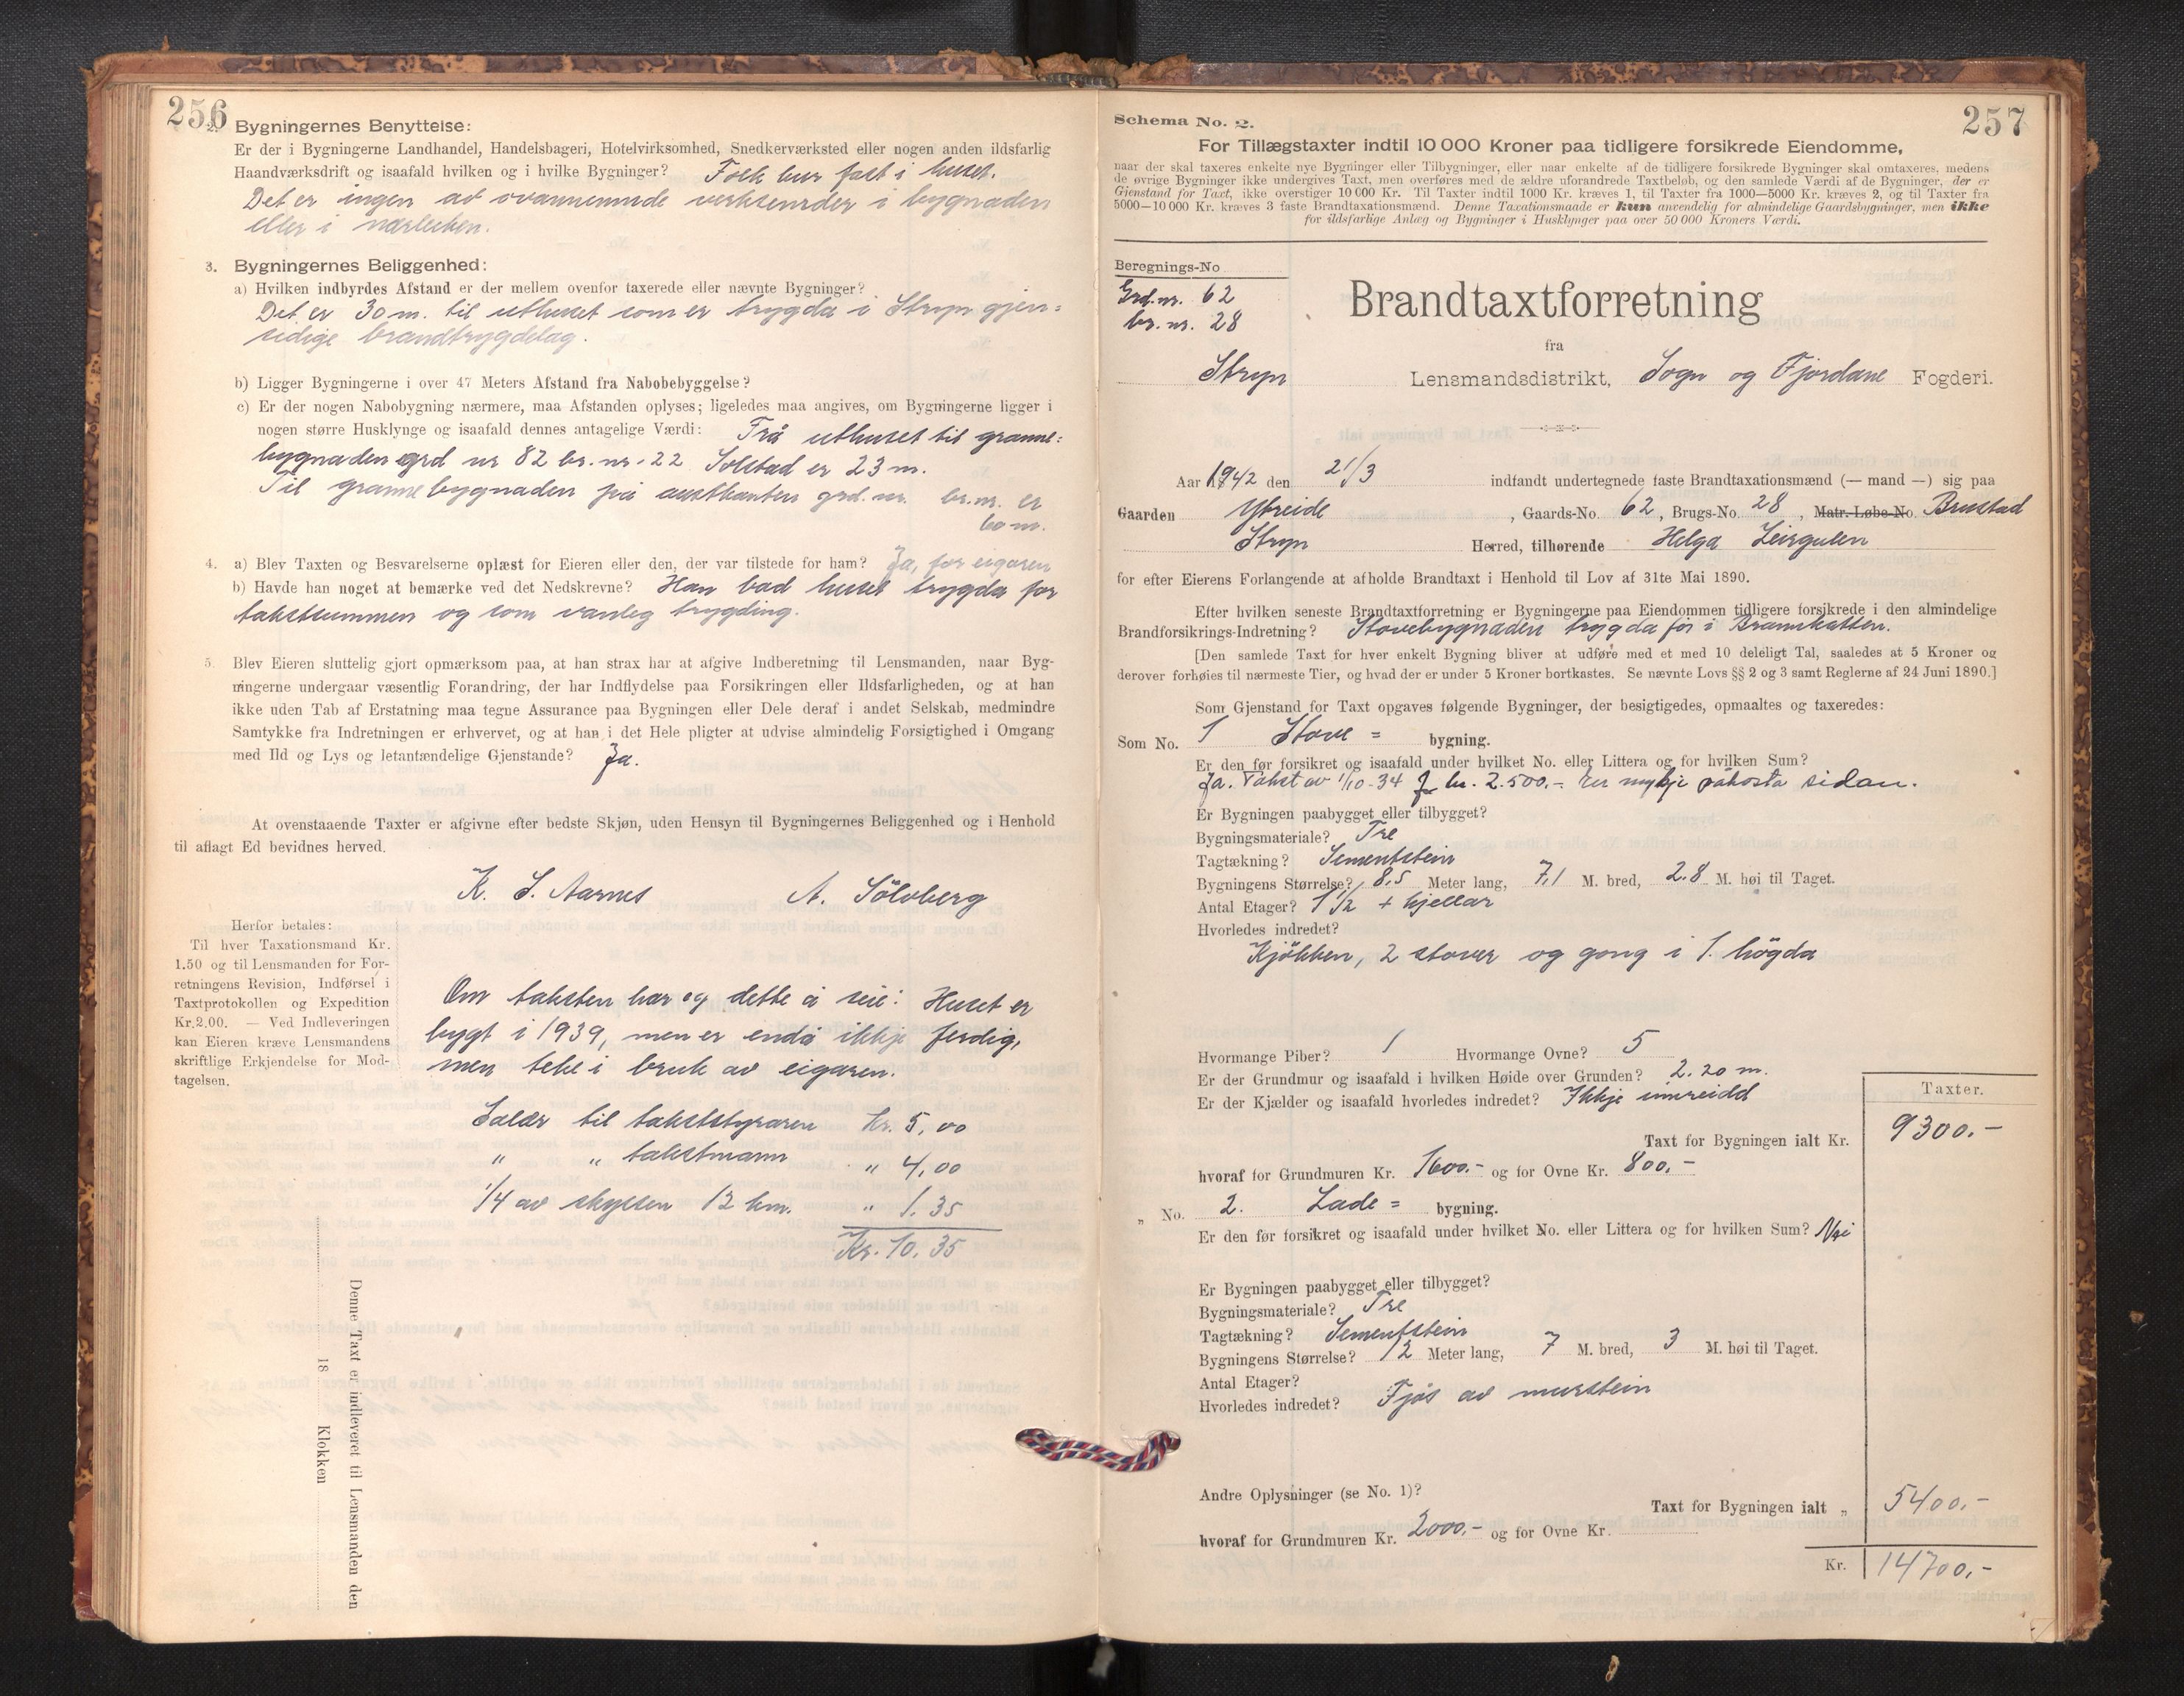 256
2. Bygningernes Benyttelse:
Er der i Bygningerne Landhandel, Handelsbageri, Hotelvirksomhed, Snedkerværksted eller nogen anden ildsfarlig
Haandværksdrift og isaafald hvilken og i hvilke Bygninger? Folk bur fast i huset.
Det er ingen av ovannemnde verksemder i bygnaden
eller i nærleiken.
3. Bygningernes Beliggenhed:
a) Hvilken indbyrdes Afstand er der mellem ovenfor taxerede eller nævnte Bygninger?
Det er 30 m. til uthuset som er trygda i Stryn gjen=
sidige brandtrygdelag.
b) Ligger Bygningerne i over 47 Meters Afstand fra Nabobebyggelse?
c) Er der nogen Nabobygning nærmere, maa Afstanden oplyses; ligeledes maa angives, om Bygningerne ligger i
nogen større Husklynge og isaafald dennes antagelige Værdi: Frå uthuset til granne=
bygnaden grd nr 82 br. nr. 22 Solstad er 23 m.
Til grannebygnaden på austkanten grd. nr. br. nr. er
60 m.
4. a) Blev Taxten og Besvarelserne oplæst for Eieren eller den, der var tilstede for ham? Ja, for eigaren
b) Havde han noget at bemærke ved det Nedskrevne? Han bad huset trygda for
takstsummen og som vanleg trygding.
5. Blev Eieren sluttelig gjort opmærksom paa, at han strax har at afgive Indberetning til Lensmanden, naar Byg-
ningerne undergaar væsentlig Forandring, der har Indflydelse paa Forsikringen eller Ildsfarligheden, og at han
ikke uden Tab af Erstatning maa tegne Assurance paa Bygningen eller Dele deraf i andet Selskab, medmindre
Samtykke fra Indretningen er erhvervet, og at han i det Hele pligter at udvise almindelig Forsigtighed i Omgang
med Ild og Lys og letantændelige Gjenstande? Ja.
At ovenstaaende Taxter er afgivne efter bedste Skjøn, uden Hensyn til Bygningernes Beliggenhed og i Henhold
til aflagt Ed bevidnes herved.
K. S. Aarnes A. Sölvberg
Herfor betales:
Til hver Taxationsmand Kr.
1.50 og til Lensmanden for For-
retningens Revision, Indførsel i
Taxtprotokollen og Expedition
Kr. 2.00. — Ved Indleveringen
kan Eieren kræve Lensmandens
skriftlige Erkjendelse for Mod-
tagelsen.
Om taksten har og dette å seie: Huset er
bygt i 1939, men er endå ikkje ferdig,
men teke i bruk av eigaren.
Salær til takststyraren Kr. 5,00
" " takstmann " 4,00
1/4 av skyssen 12 km. " 1.35
Kr. 10.35
Denne Taxt er indleveret til Lensmanden den
18 Klokken
257
Schema No. 2.
For Tillægstaxter indtil 10 000 Kroner paa tidligere forsikrede Eiendomme,
naar der skal taxeres enkelte nye Bygninger eller Tilbygninger, eller naar enkelte af de tidligere forsikrede Bygninger skal omtaxeres, medens
de øvrige Bygninger ikke undergives Taxt, men overføres med de ældre uforandrede Taxtbeløb, og den samlede Værdi af de Bygninger, der er
Gienstand for Taxt, ikke overstiger 10 000 Kr. Til Taxter indtil 1000 Kr. kræves 1, til Taxter fra 1000—5000 Kr. kræves 2, og til Taxter fra
5000—10 000 Kr. kræves 3 faste Brandtaxationsmænd. Denne Taxationsmaade er kun anvendelig for almindelige Gaardsbygninger, men ikke
for ildsfarlige Anlæg og Bygninger i Husklynger paa over 50 000 Kroners Værdi.
Beregnings-No
Grd. nr. 62
br. nr. 28
Brandtaxtforretning
fra
Stryn Lensmandsdistrikt, Sogn og Fjordane Fogderi.
Aar 1942 den 21/3 indfandt undertegnede faste Brandtaxationsmænd (— mand —) sig paa
Gaarden Ytreide, Gaards-No. 62, Brugs-No. 28, Matr.-Løbe-No. Brustad
Stryn Herred, tilhørende Helga Leirgulen
for efter Eierens Forlangende at afholde Brandtaxt i Henhold til Lov af 31te Mai 1890.
Efter hvilken seneste Brandtaxtforretning er Bygningerne paa Eiendommen tidligere forsikrede i den almindelige
Brandforsikrings-Indretning? Stovebygnaden trygda för i Brannkassen.
[Den samlede Taxt for hver enkelt Bygning bliver at udføre med et med 10 deleligt Tal, saaledes at 5 Kroner og
derover forhøies til nærmeste Tier, og hvad der er under 5 Kroner bortkastes. Se nævnte Lovs §§ 2 og 3 samt Reglerne af 24 Juni 1890.]
Som Gjenstand for Taxt opgaves følgende Bygninger, der besigtigedes, opmaaltes og taxeredes:
Som No. 1 Stove = bygning.
Er den før forsikret og isaafald under hvilket No. eller Littera og for hvilken Sum?
Ja. Takst av 1/10-34 kr. 2.500.- Er mykje påkosta sidan.
Er Bygningen paabygget eller tilbygget?
Bygningsmateriale? Tre
Tagtækning? Sementstein
Bygningens Størrelse? 8,5 Meter lang, 7,1 M. bred, 2.8 M. høi til Taget.
Antal Etager? 1 1/2 + kjellar
Hvorledes indredet?
Kjökken, 2 stover og gong i 1. högda
Hvormange Piber? 1 Hvormange Ovne? 5
Er der Grundmur og isaafald i hvilken Høide over Grunden? 2.20 m.
Er der Kjælder og isaafald hvorledes indredet? Ikkje innreidd
Taxter.
Taxt for Bygningen ialt Kr. 9300.-
hvoraf for Grundmuren Kr. 1600.- og for Ovne Kr. 800,-
" No. 2. Lade = bygning.
Er den før forsikret og isaafald under hvilket No. eller Littera og for hvilken Sum? Nei
Er Bygningen paabygget eller tilbygget?
Bygningsmateriale? Tre
Tagtækning? Sementstein
Bygningens Størrelse? 12 Meter lang, 7 M. bred, 3 M. høi til Taget.
Antal Etager?
Hvorledes indredet? Fjös av murstein
Andre Oplysninger (se No. 1)?
Taxt for Bygningen ialt " 5400.-
hvoraf for Grundmuren Kr. 2000.- og for Ovne Kr.
Kr. 14700,-